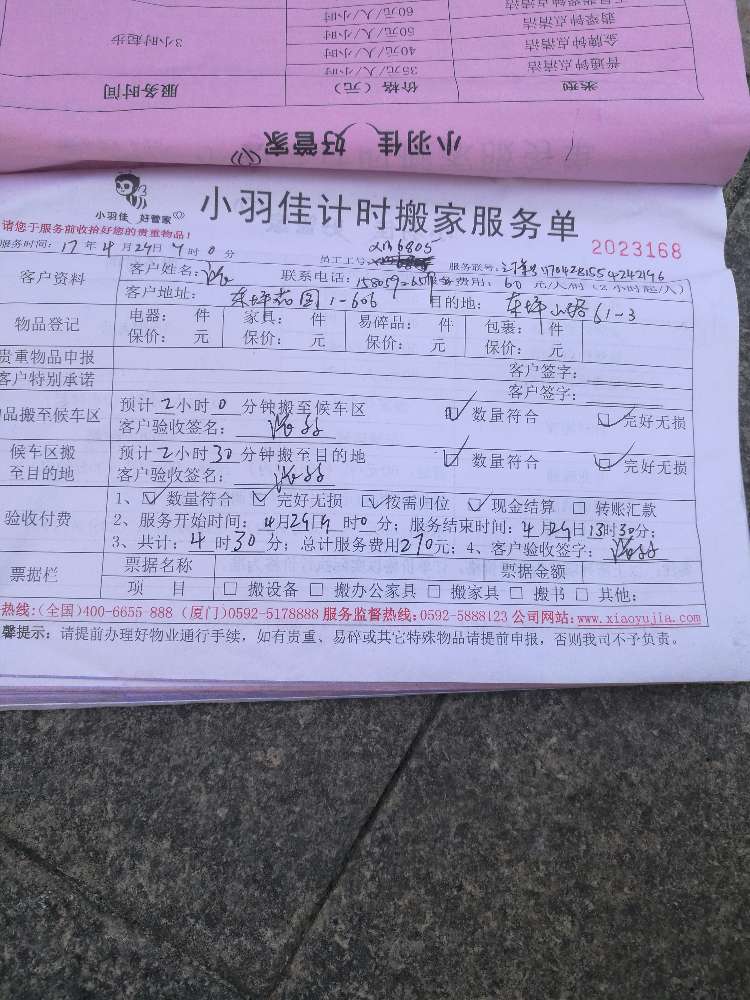 类型 价格（元） 服务时间
普通钟点清洁 35元/人/小时
金牌钟点清洁 40元/人/小时 3小时起步
翡翠钟点清洁 50元/人/小时
60元/人/小时
小羽佳 好管家
小羽佳 好管家
小羽佳计时搬家服务单
2023168
请您于服务前收拾好您的贵重物品！
服务时间：17年4月29日 时0分 员工工号： xm6805 服务联号： 170428155424296
客户资料 客户姓名： 联系电话： 服务费用：60元/人/时（2小时起/人）
客户地址：东坪花园1-606 目的地：东坪山路61-3
物品登记 电器： 件 家具： 件 易碎品： 件 包裹： 件
保价： 元 保价： 元 保价： 元 保价： 元
贵重物品申报 客户签字：
客户特别承诺 客户签字：
品搬至候车区 预计2小时0分钟搬至候车区 数量符合 完好无损
客户验收签名：
候车区搬至目的地 预计2小时30分钟搬至目的地 数量符合 完好无损
客户验收签名：
验收付费 1、数量符合 完好无损 按需归位 现金结算 转账汇款
2、服务开始时间：4月29日9时0分；服务结束时间：4月29日13时30分；
3、共计：4时30分；总计服务费用270元；4、客户验收签字：
票据栏 票据名称 票据金额
项 目 □ 搬设备 □ 搬办公家具 □ 搬家具 □ 搬书 □ 其他：
热线：(全国)400-6655-888 (厦门)0592-5178888 服务监督热线：0592-5888123 公司网站：www.xiaoyujia.com
馨提示：请提前办理好物业通行手续，如有贵重、易碎或其它特殊物品请提前申报，否则我司不予负责。